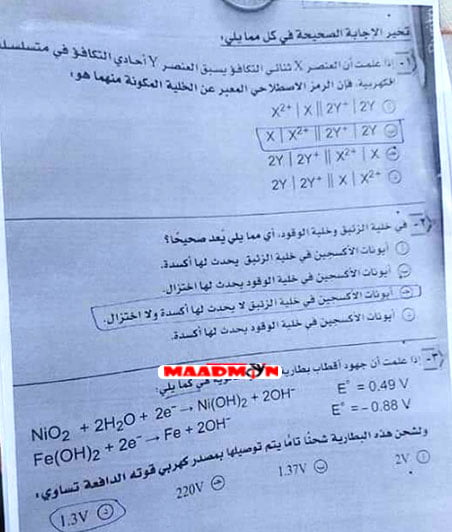 تخير الإجابة الصحيحة في كل مما يلي:
١- إذا علمت أن العنصر X ثنائي التكافؤ يسبق العنصر Y أحادي التكافؤ في متسلسلة
الكهربية، فإن الرمز الاصطلاحي المعبر عن الخلية المكونة منهما هو:
أ X²⁺ | X || 2Y⁺ | 2Y
ب X | X²⁺ || 2Y⁺ | 2Y
ج 2Y | 2Y⁺ || X²⁺ | X
د 2Y | 2Y⁺ || X | X²⁺
٢- في خلية الزئبق وخلية الوقود، أي مما يلي يُعد صحيحًا؟
أ أيونات الأكسجين في خلية الزئبق يحدث لها أكسدة.
ب أيونات الأكسجين في خلية الوقود يحدث لها اختزال.
ج أيونات الأكسجين في خلية الزئبق لا يحدث لها أكسدة ولا اختزال.
د أيونات الأكسجين في خلية الوقود يحدث لها أكسدة.
٣- إذا علمت أن جهود أقطاب بطارية كما يلي:
MAADMOYN
NiO₂ + 2H₂O + 2e⁻ → Ni(OH)₂ + 2OH⁻ E° = 0.49 V
Fe(OH)₂ + 2e⁻ → Fe + 2OH⁻ E° = - 0.88 V
ولشحن هذه البطارية شحنًا تامًا يتم توصيلها بمصدر كهربي قوته الدافعة تساوي:
أ 2V ب 1.37V ج 220V د 1.3V